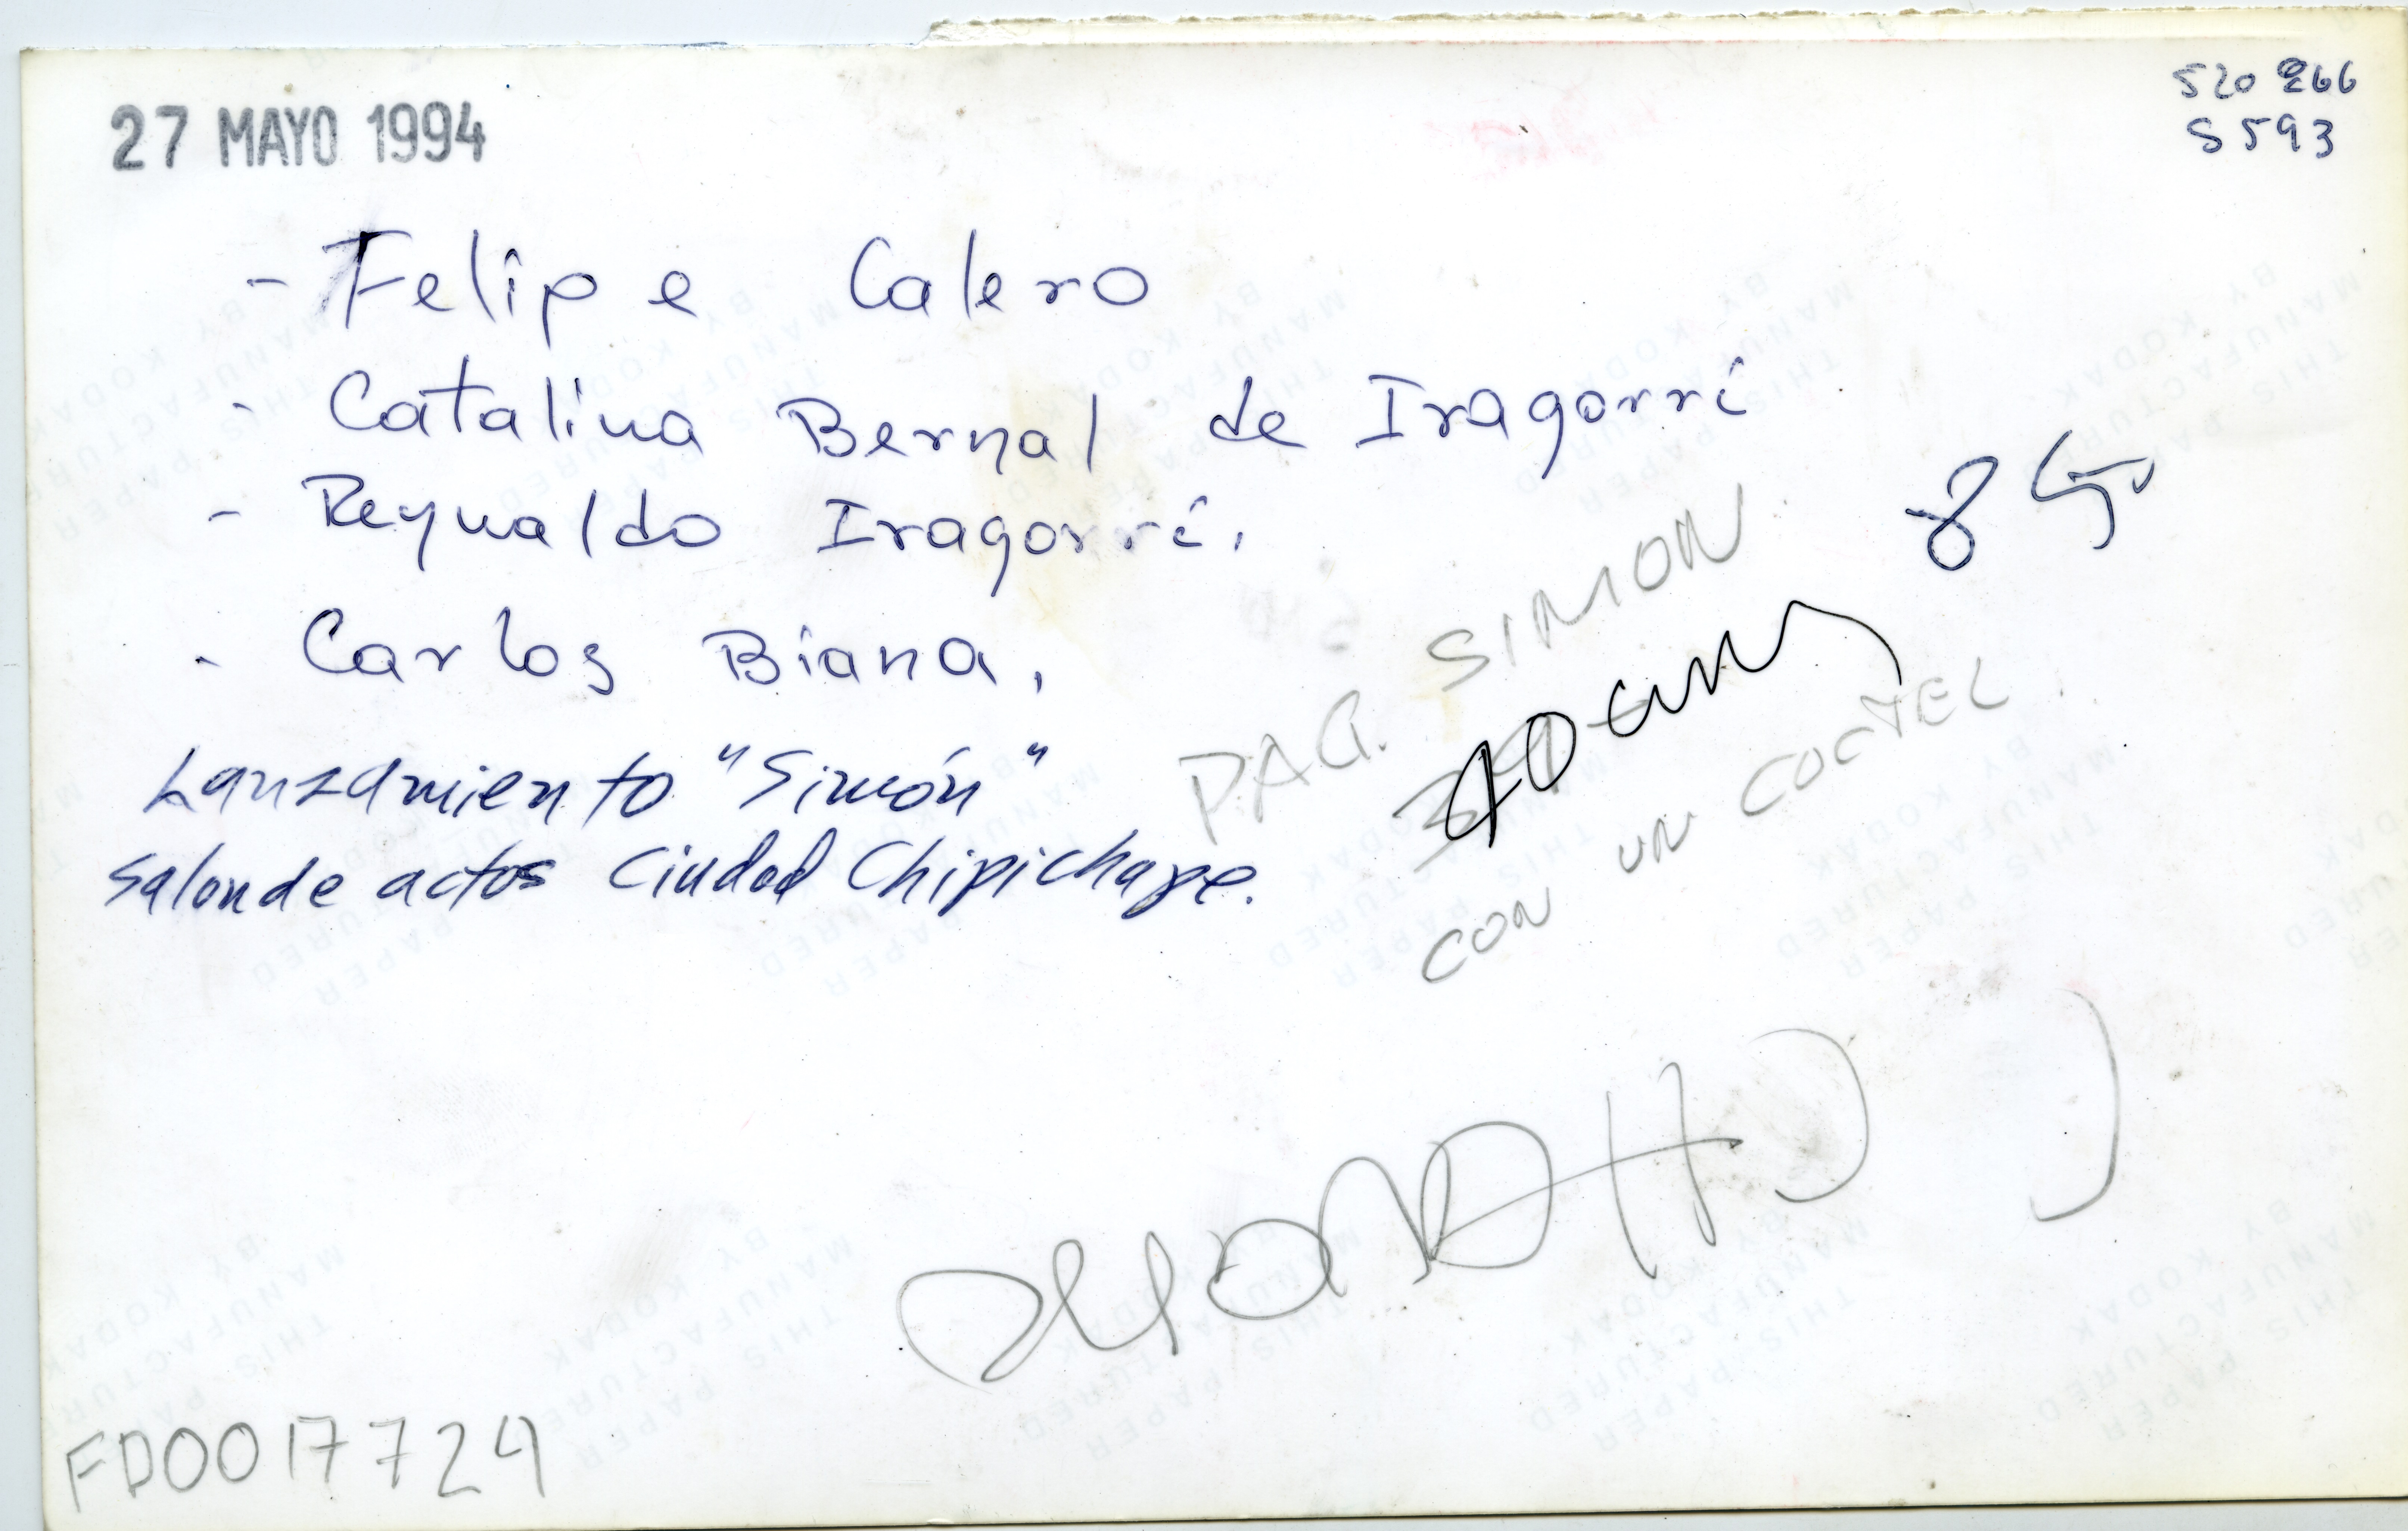 27 MAYO 1994
520 266
S 593
- Felipe Calero
- Catalina Bernal de Iragorri
- Reynaldo Iragorri.
- Carlos Biana.
Lanzamiento "Simón"
Salon de actos Ciudad Chipichape.
85
PAG. SIMON
10 cms
CON UN COCTEL
FD0017724
THIS PAPER
MANUFACTURED
BY KODAK